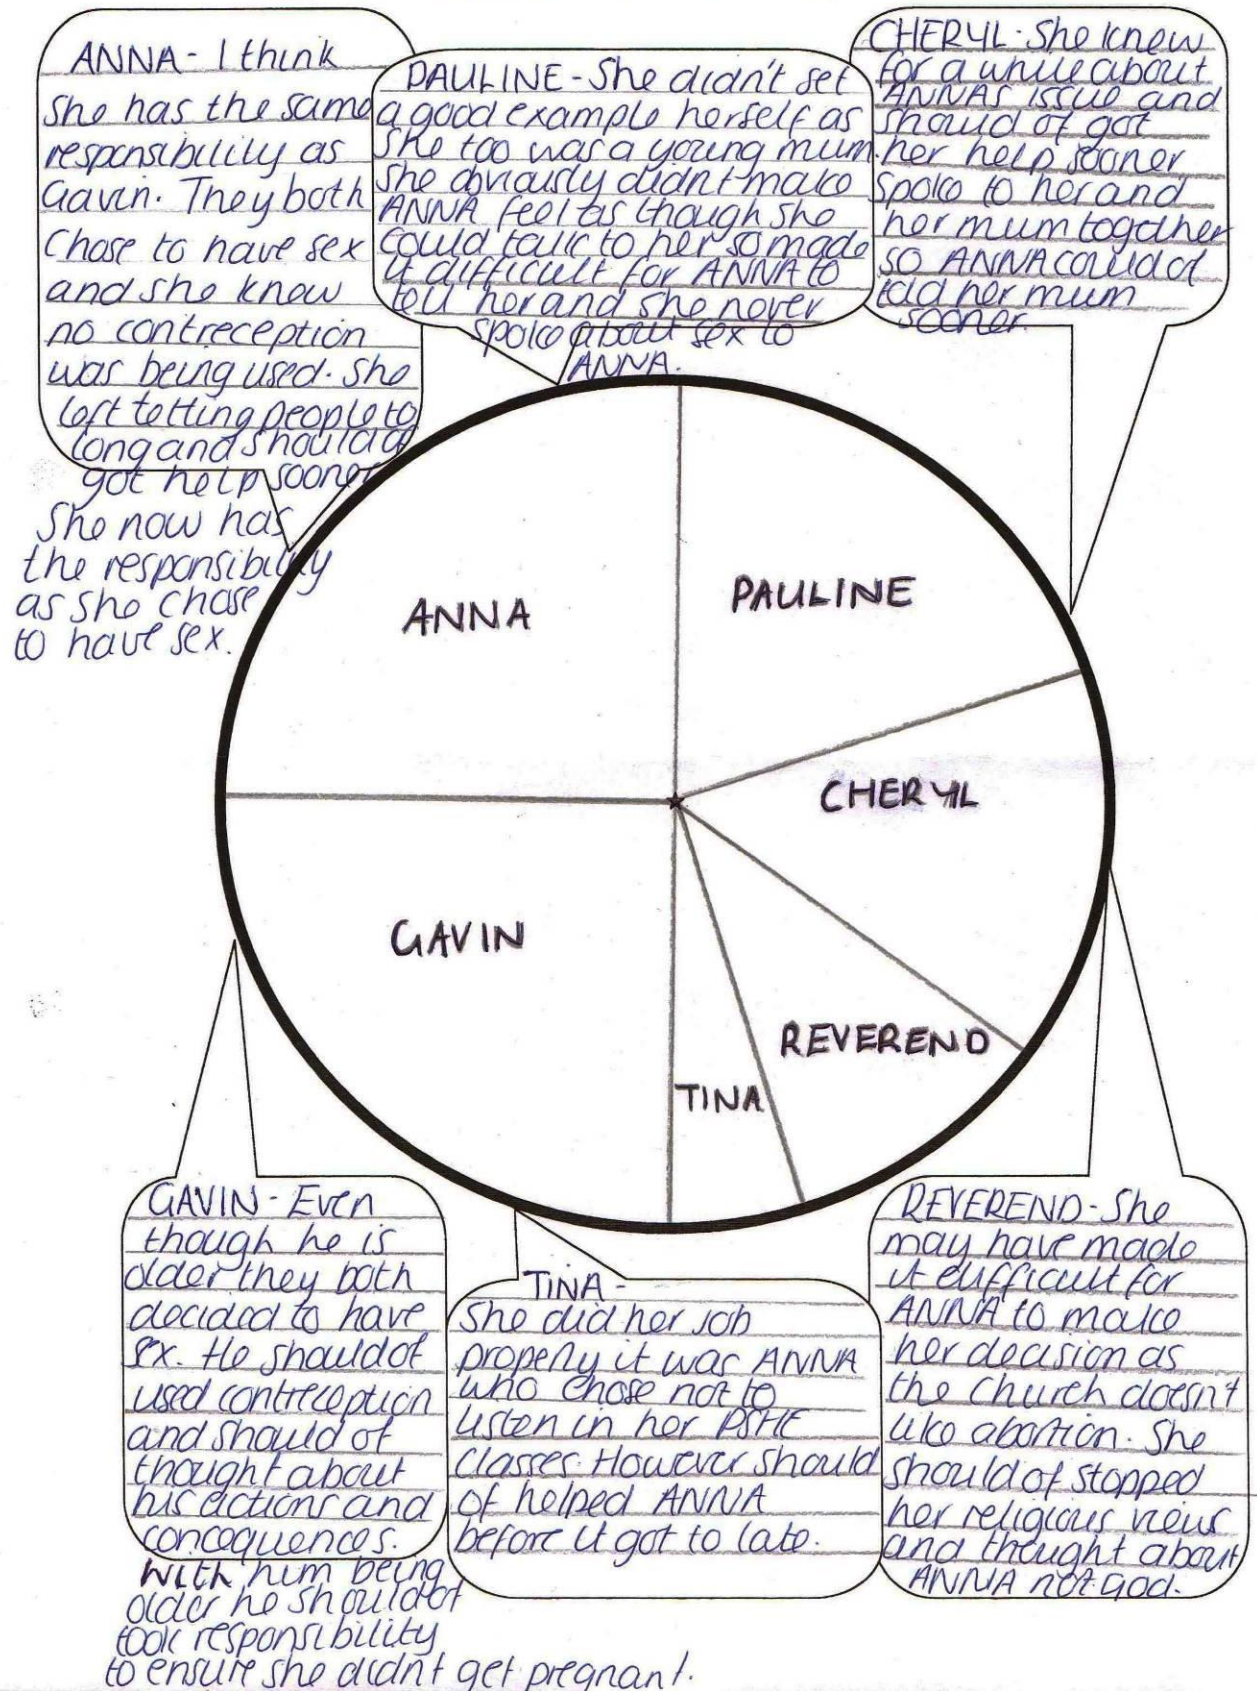 ANNA - I think
she has the same
responsibility as
Gavin. They both
chose to have sex
and she knew
no contreception
was being used. She
left tetting people to
long and should of
got help sooner
She now has
the responsibility
as she chose
to have sex.
PAULINE - She didn't set
a good example herself as
she too was a young mum.
She obviously didnt make
ANNA feel as though she
could talk to her so made
it difficult for ANNA to
tell her and she never
spoke about sex to
ANNA.
CHERYL - She knew
for a while about
ANNAS issue and
should of got
her help sooner
spoke to her and
her mum together
so ANNA could of
told her mum
sooner.
ANNA
PAULINE
CHERYL
GAVIN
REVEREND
TINA
GAVIN - Even
though he is
older they both
decided to have
sex. He should of
used contreception
and should of
thought about
his actions and
concequences.
With him being
older he should of
took responsibility
to ensure she didnt get pregnant.
TINA -
She did her job
properly it was ANNA
who chose not to
listen in her PSHE
classes. However should
of helped ANNA
before it got to late.
REVEREND - She
may have made
it difficult for
ANNA to make
her decision as
the Church doesn't
like abortion. She
should of stopped
her religious views
and thought about
ANNA not God.